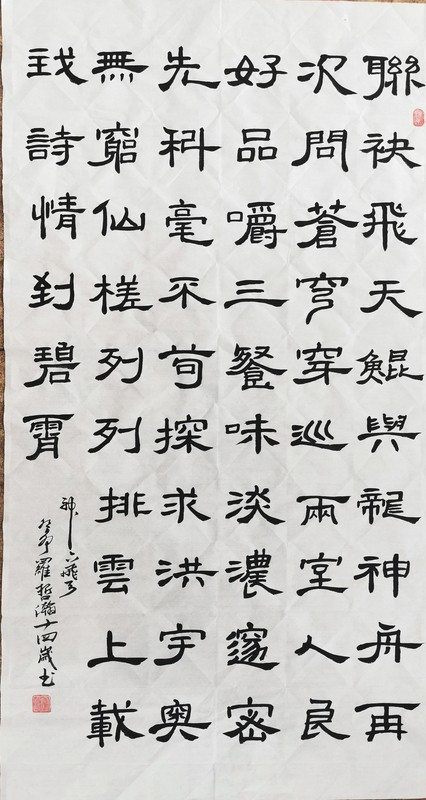 聯袂飛天鯤與龍神舟再
次問蒼穹穿巡兩室人良
好品嚼三餐味淡濃邃密
先科毫不苟探求洪宇奧
無窮仙槎列列排雲上載
我詩情到碧霄
神六飛天
癸卯羅哲瀚十四歲书